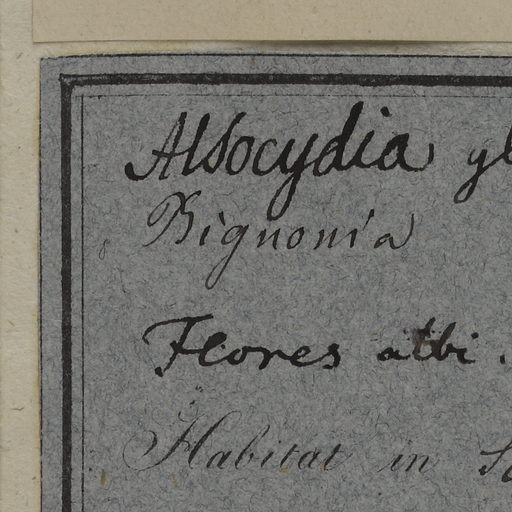 Alsocydia gl
Bignonia
Flores albi.
Habitat in